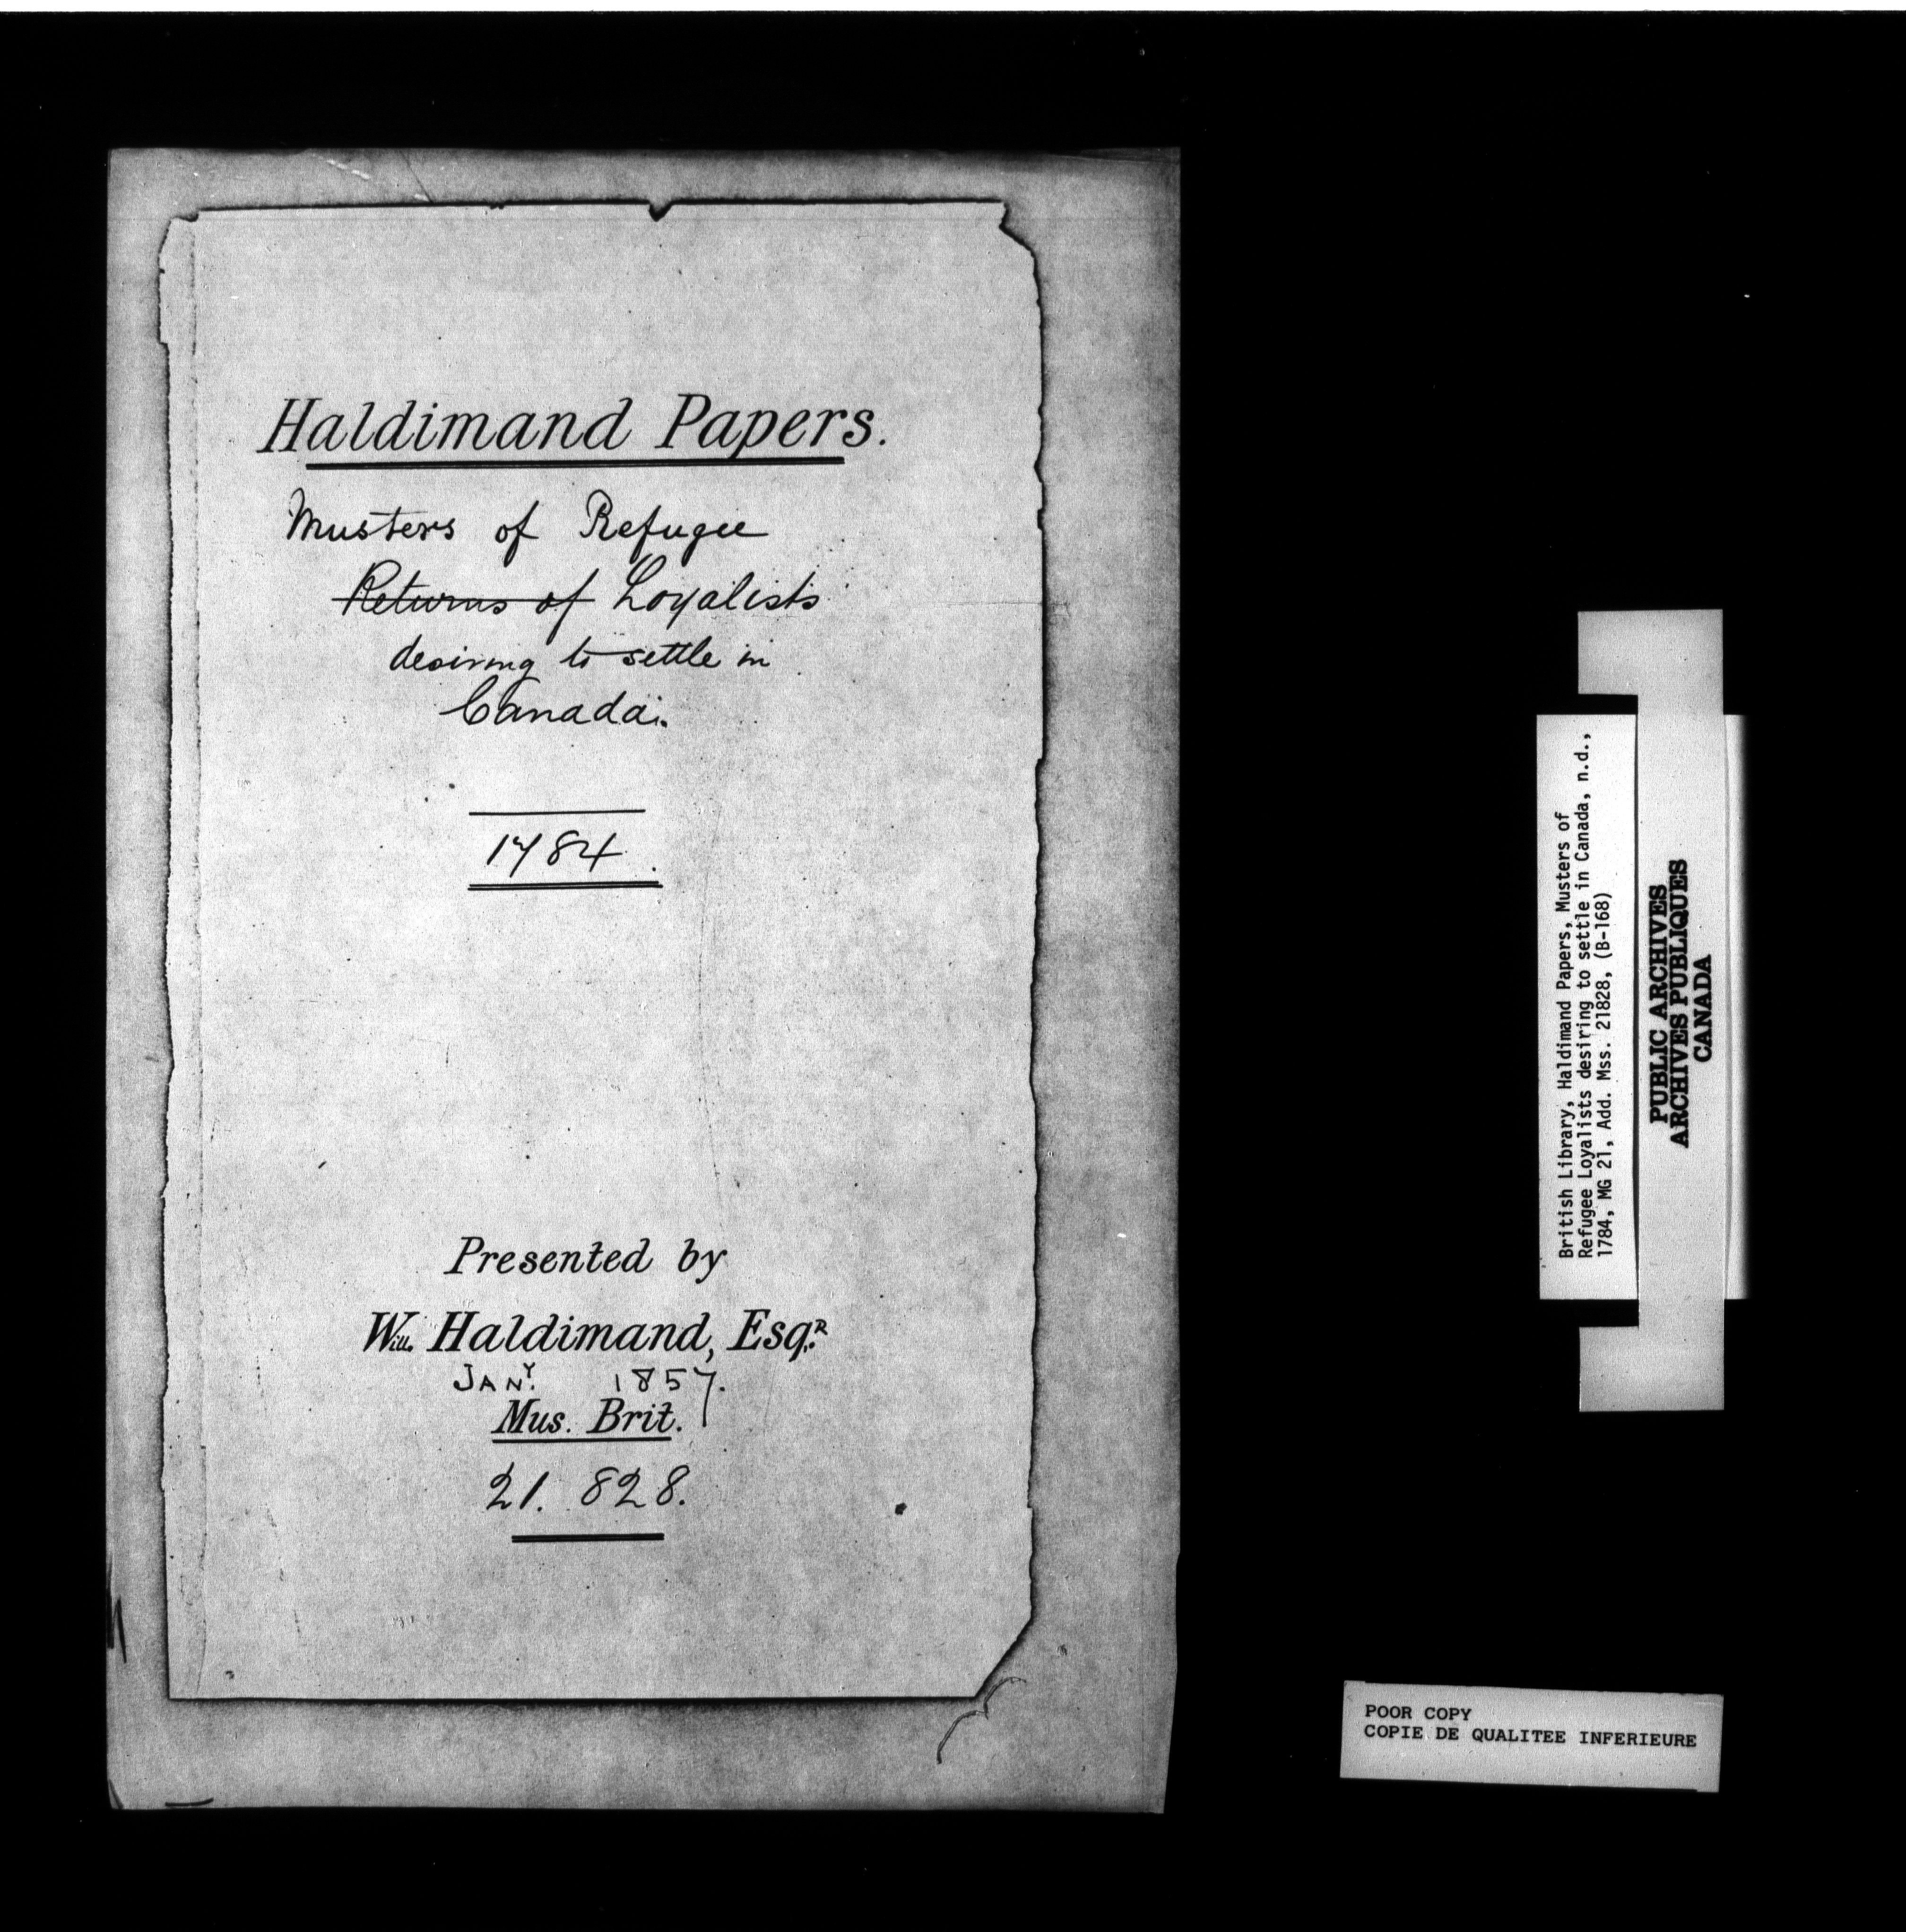 Haldimand Papers.
Musters of Refugee
Returns of Loyalists
desiring to settle in
Canada.
1784.
Presented by
Will. Haldimand, Esqr.
JANY. 1857.
Mus. Brit.
21. 828.
British Library, Haldimand Papers, Musters of
Refugee Loyalists desiring to settle in Canada, n.d.,
1784, MG 21, Add. Mss. 21828, (B-168)
PUBLIC ARCHIVES
ARCHIVES PUBLIQUES
CANADA
POOR COPY
COPIE DE QUALITEE INFERIEURE